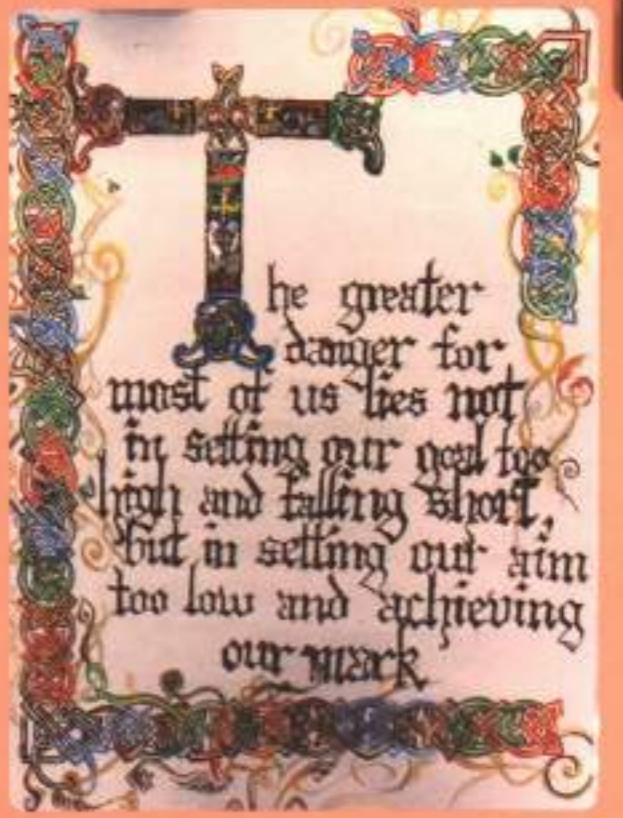 The greater
danger for
most of us lies not
in setting our goal too
high and falling short,
but in setting our aim
too low and achieving
our mark